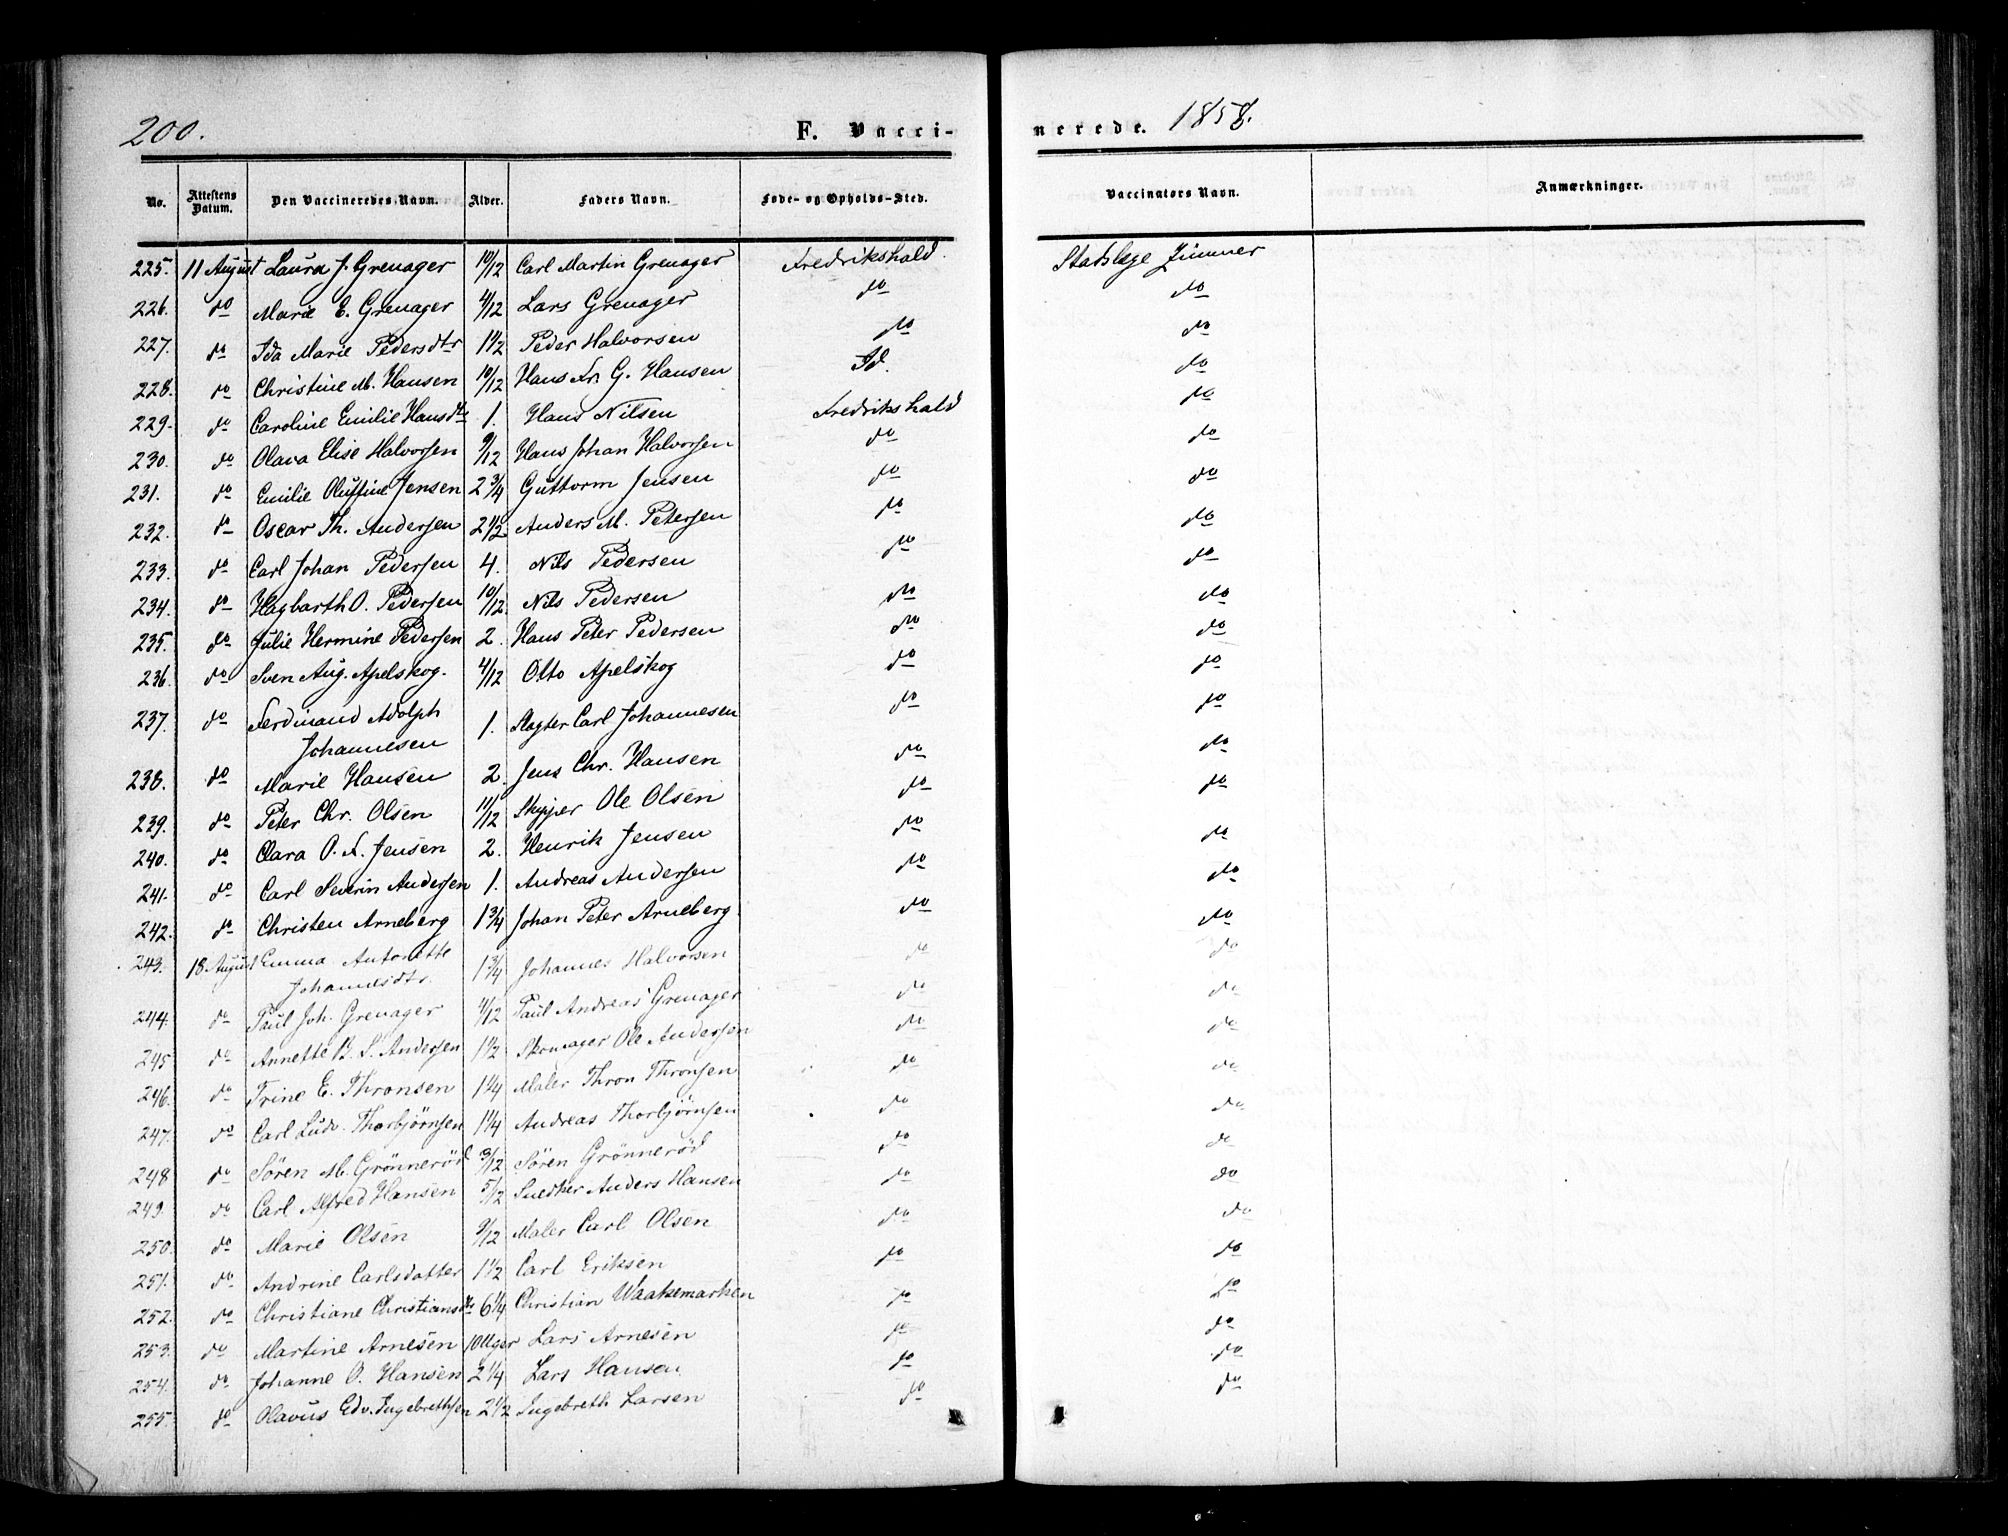 200.
F. Vacci-
nerede. 1858.
No. Attestens Datum. Den Vaccineredes Navn. Alder. Faders Navn. Føde- og Opholds-Sted. Vaccinators Navn. Anmærkninger.
225. 11 August Laura J. Grenager 10/12 Carl Martin Grenager Fredrikshald. Stadslæge Zimmer
226. do Marie E. Grenager 4/12 Lars Grenager do do
227. do Ida Marie Pedersdtr 1 1/2 Peder Halvorsen do do
228. do Christine M. Hansen 10/12 Hans Fr. G. Hansen Id. do
229. do Caroline Emilie Hansdtr 1. Hans Nilsen Fredrikshald do
230. do Olava Elise Halvorsen 9/12 Hans Johan Halvorsen do do
231. do Emilie Oluffine Jensen 2 3/4 Guttorm Jensen do do
232. do Oscar Th. Andersen 2 1/2 Anders M. Petersen do do
233. do Carl Johan Pedersen 4. Nils Pedersen do do
234. do Hagbarth O. Pedersen 10/12 Nils Pedersen do do
235. do Julie Hermine Pedersen 2. Hans Peter Pedersen do do
236. do Sven Aug. Apelskog. 4/12 Otto Apelskog do do
237. do Ferdinand Adolph 1. Slagter Carl Johannesen do do
Johannesen
238. do Marie Hansen 2. Jens Chr. Hansen do do
239. do Peter Chr. Olsen 11/12 Skipper Ole Olsen do do
240. do Clara O. F. Jensen 2. Henrik Jensen do do
241. do Carl Severin Andersen 1. Andreas Andersen do do
242. do Christen Arneberg 1 3/4 Johan Peter Arneberg do do
243. 18 August Emma Antonette 1 3/4 Johannes Halvorsen do do
Johannesdtr.
244. do Paul Joh. Grenager 4/12 Paul Andreas Grenager do do
245 do Annette B. S. Andersen 1 1/2 Skomager Ole Andersen do do
246. do Trine E. Thronsen 1 1/4 Maler Thron Thronsen do do
247. do Carl Ludv. Thorbjörnsen 1 1/4 Andreas Thorbjörnsen do do
248 do Sören M. Grönneröd 3/12 Sören Grönneröd do do
249. do Carl Alfred Hansen 5/12 Snedker Anders Hansen do do
250. do Marie Olsen 9/12 Maler Carl Olsen do do
251. do Andrine Carlsdatter 1 1/2 Carl Eriksen do do
252. do Christiane Christiansdtr 6 1/4 Christian Waakemarken do do
253. do Martine Arnesen 10 Uger Lars Arnesen do do
254. do Johanne O. Hansen 2 1/4 Lars Hansen do do
255. do Olavus Edv. Ingebrethsen 2 1/2 Ingebreth Larsen do do